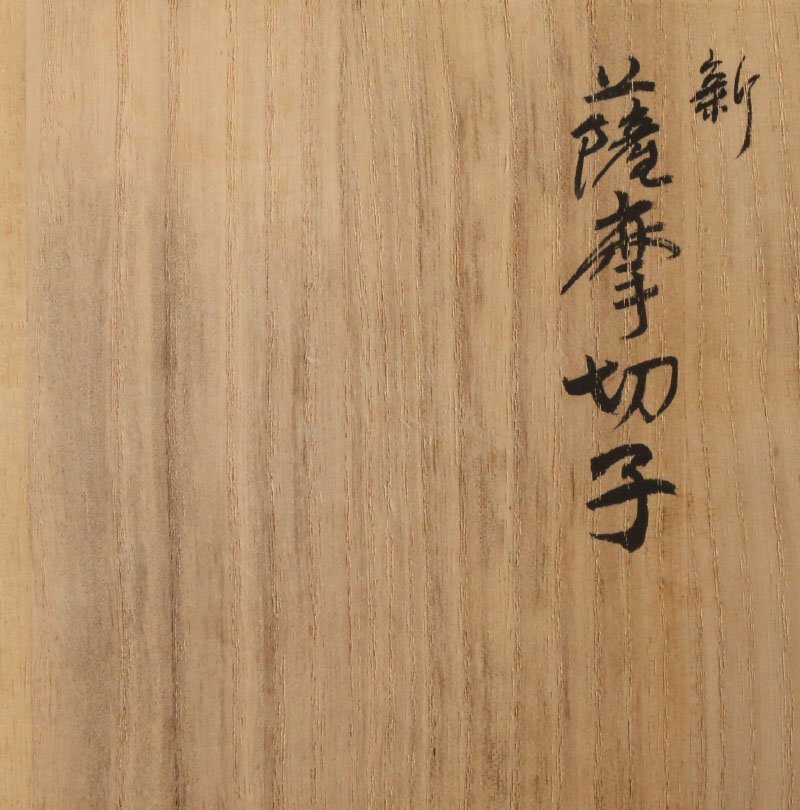 新
薩摩切子